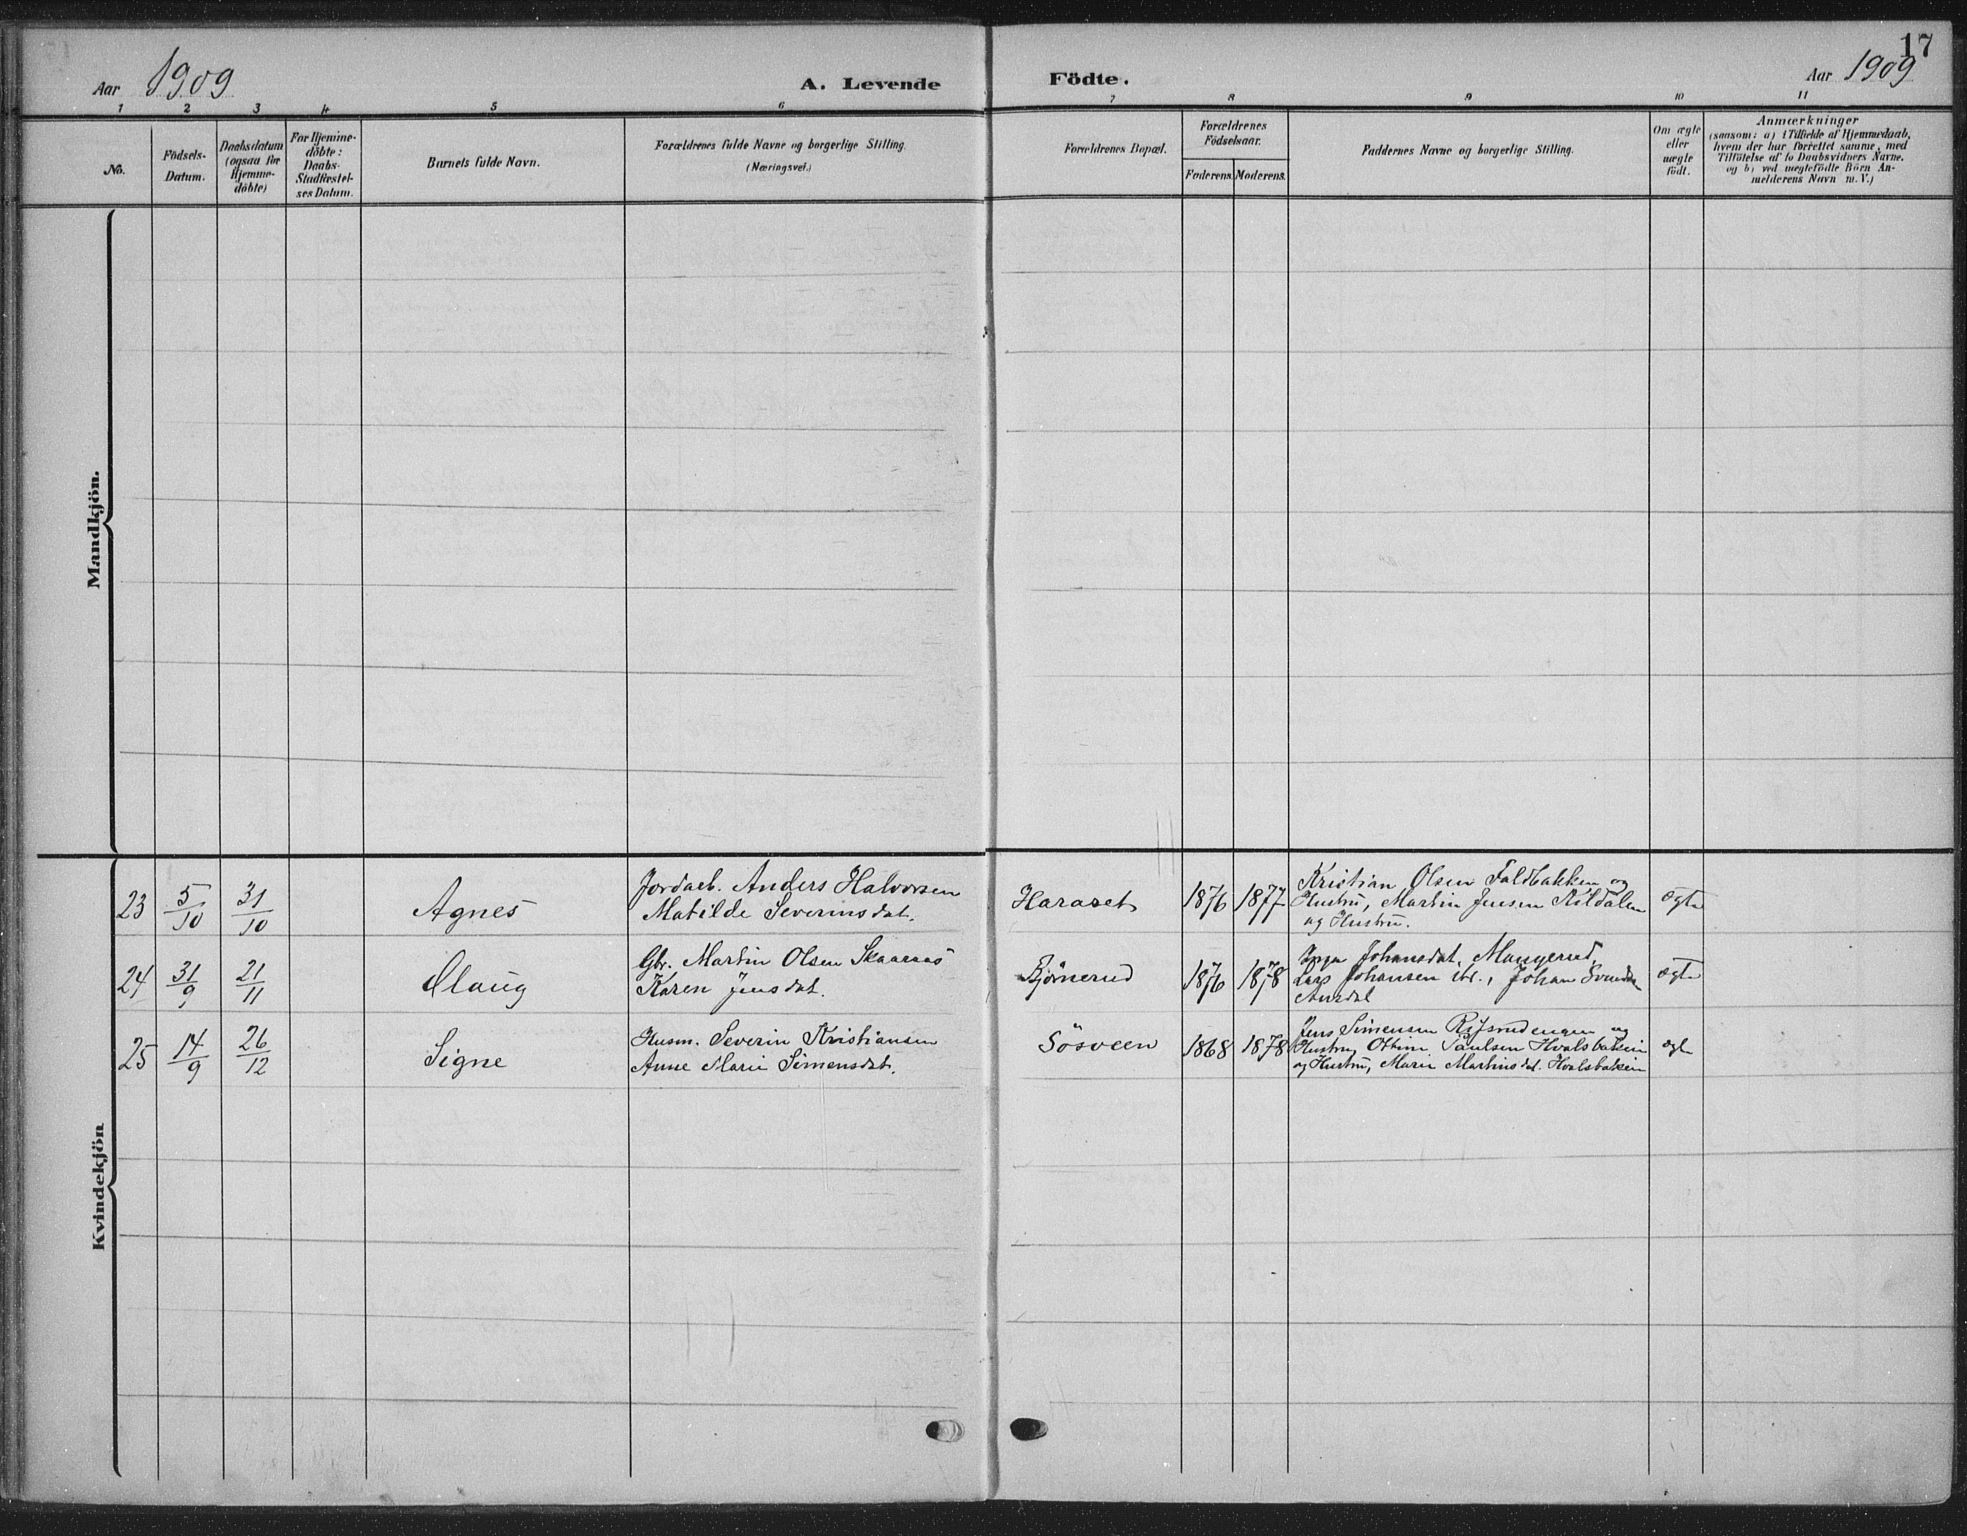 17
Aar 1909
A. Levende Födte.
Aar 1909
1 2 3 4 5 6 7 8 9 10 11
No.
Födsels-
Datum.
Daabsdatum
(ogsaa for
Hjemme-
döbte)
For Hjemme-
döbte:
Daabs-
Stadfæstel-
ses Datum.
Barnets fulde Navn.
Forældrenes fulde Navne og borgerlige Stilling.
(Næringsvei.)
Forældrenes Bopæl.
Forældrenes
Födselsaar.
Faderens. Moderens.
Faddernes Navne og borgerlige Stilling.
Om ægte
eller
uægte
födt.
Anmærkninger
(saasom: a) i Tilfælde af Hjemmedaab,
hvem der har forrettet samme, med
Tilföielse af to Daabsvidners Navne.
og b) ved uægtefödte Börn An-
melderens Navn m. V.)
Mandkjön.
Kvindekjön
23 5/10 31/10 Agnes
Jordaeb. Anders Halvorsen
Matilde Severinsdat.
Haraset 1876 1877
Kristian Olsen Faldbakken og
Hustru, Martin Jensen Kildalen
og Hustru.
ægte
24 31/9 21/11 Olaug
Gbr. Martin Olsen Skaaraas
Karen Jensdat.
Bjönerud 1876 1878
Johansdat, Mangerud,
Lars Johansen ibd., Johan
Aurdal
ægte
25 14/9 26/12 Signe
Husm. Severin Kristiansen
Anne Marie Simensdat.
Sösveen 1868 1878
Jens Simensen og
Hustru, Paulsen Hvalsbakken
og Hustru, Marie Martinsdat. Hvalsbakken
ægte